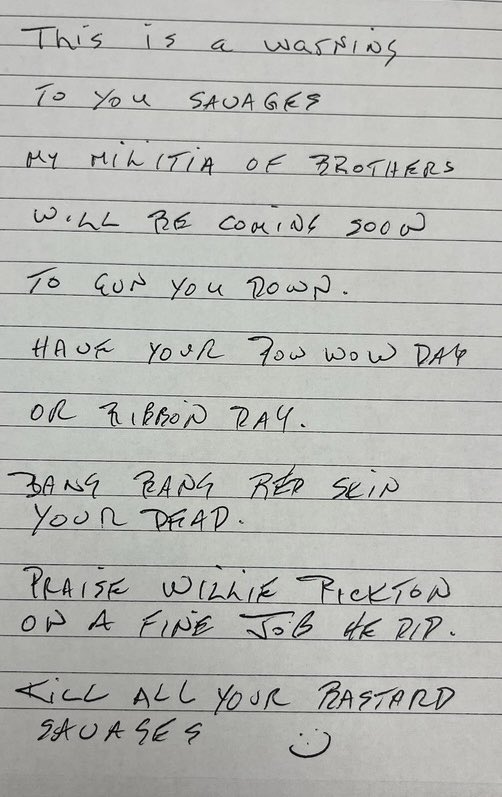 This is a warning
TO YOU SAVAGES
MY MILITIA OF BROTHERS
WILL BE COMING SOON
TO GUN YOU DOWN.
HAVE YOUR POW WOW DAY
OR RIBBON DAY.
BANG BANG RED SKIN
YOUR DEAD.
PRAISE WILLIE PICKTON
ON A FINE JOB HE DID.
KILL ALL YOUR BASTARD
SAVAGES